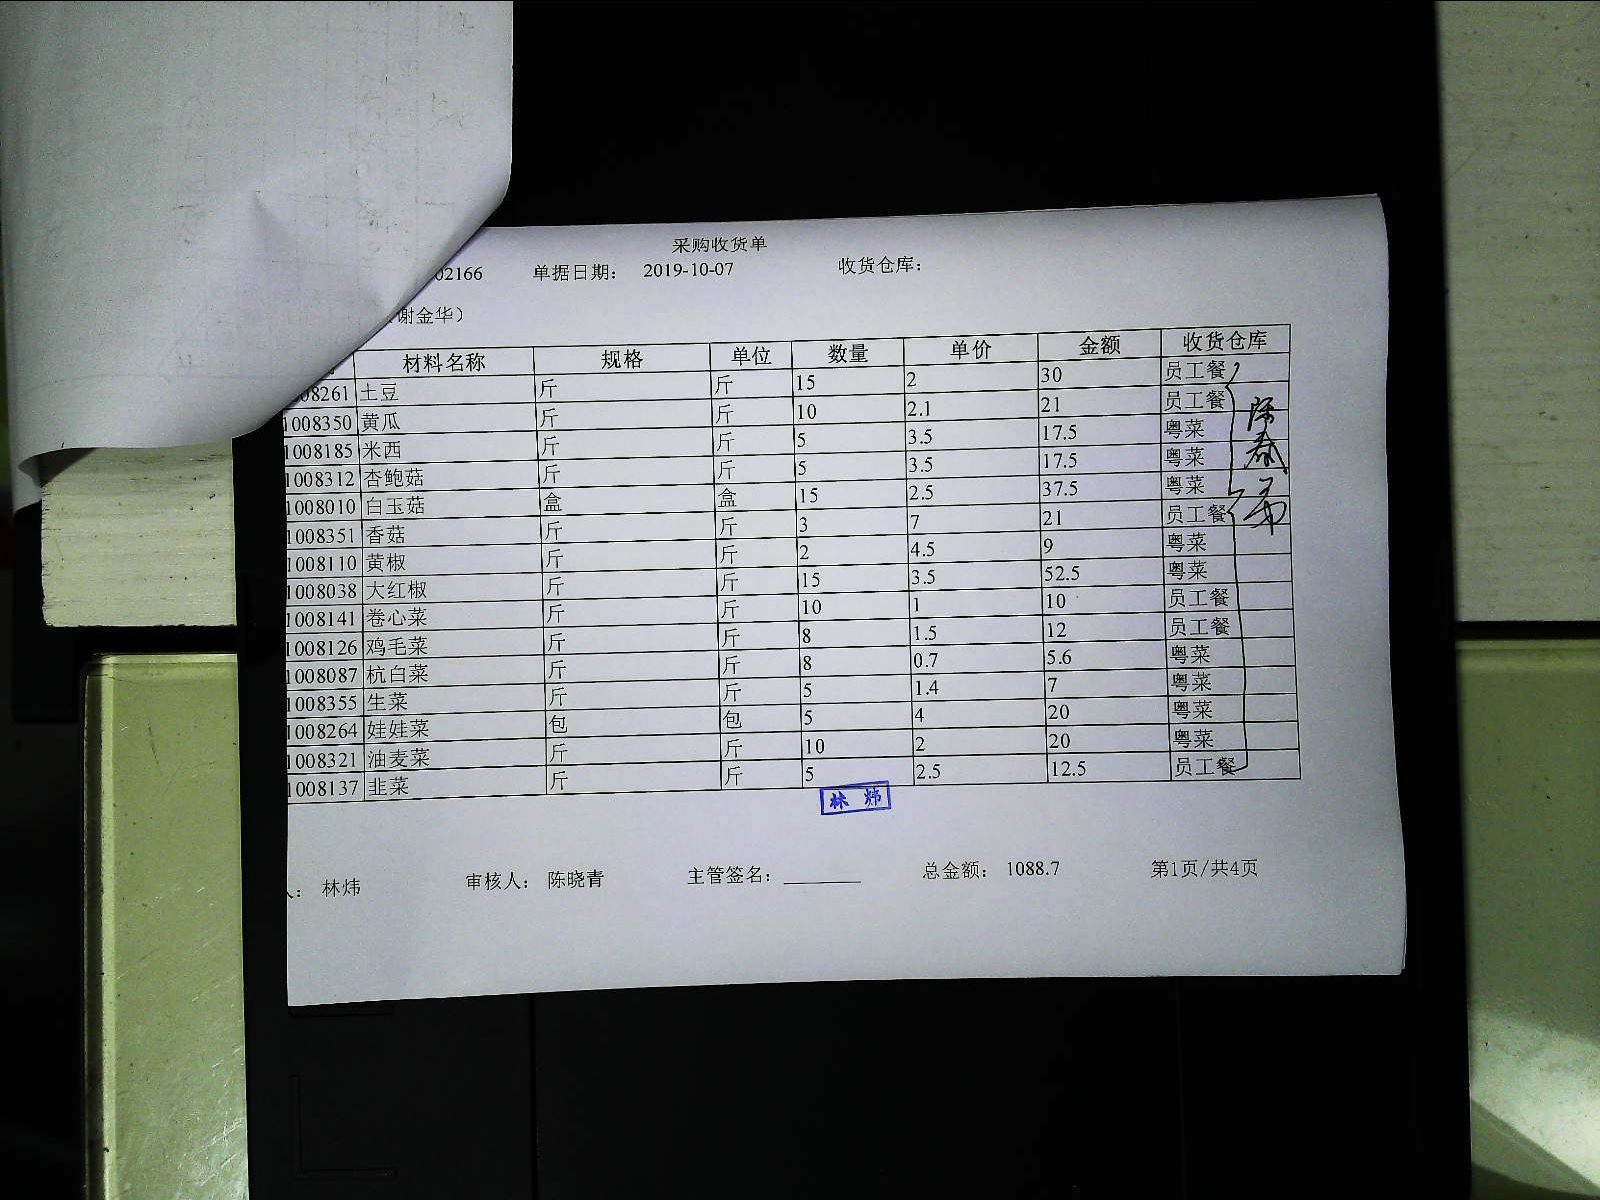 采购收货单
02166 单据日期： 2019-10-07 收货仓库：
谢金华）
材料名称 规格 单位 数量 单价 金额 收货仓库
08261 土豆 斤 斤 15 2 30 员工餐
1008350 黄瓜 斤 斤 10 2.1 21 员工餐
1008185 米西 斤 斤 5 3.5 17.5 粤菜
1008312 杏鲍菇 斤 斤 5 3.5 17.5 粤菜
1008010 白玉菇 盒 盒 15 2.5 37.5 粤菜
1008351 香菇 斤 斤 3 7 21 员工餐
1008110 黄椒 斤 斤 2 4.5 9 粤菜
1008038 大红椒 斤 斤 15 3.5 52.5 粤菜
1008141 卷心菜 斤 斤 10 1 10 员工餐
1008126 鸡毛菜 斤 斤 8 1.5 12 员工餐
1008087 杭白菜 斤 斤 8 0.7 5.6 粤菜
1008355 生菜 斤 斤 5 1.4 7 粤菜
1008264 娃娃菜 包 包 5 4 20 粤菜
1008321 油麦菜 斤 斤 10 2 20 粤菜
1008137 韭菜 斤 斤 5 2.5 12.5 员工餐
林炜
人： 林炜 审核人： 陈晓青 主管签名： 总金额： 1088.7 第1页/共4页